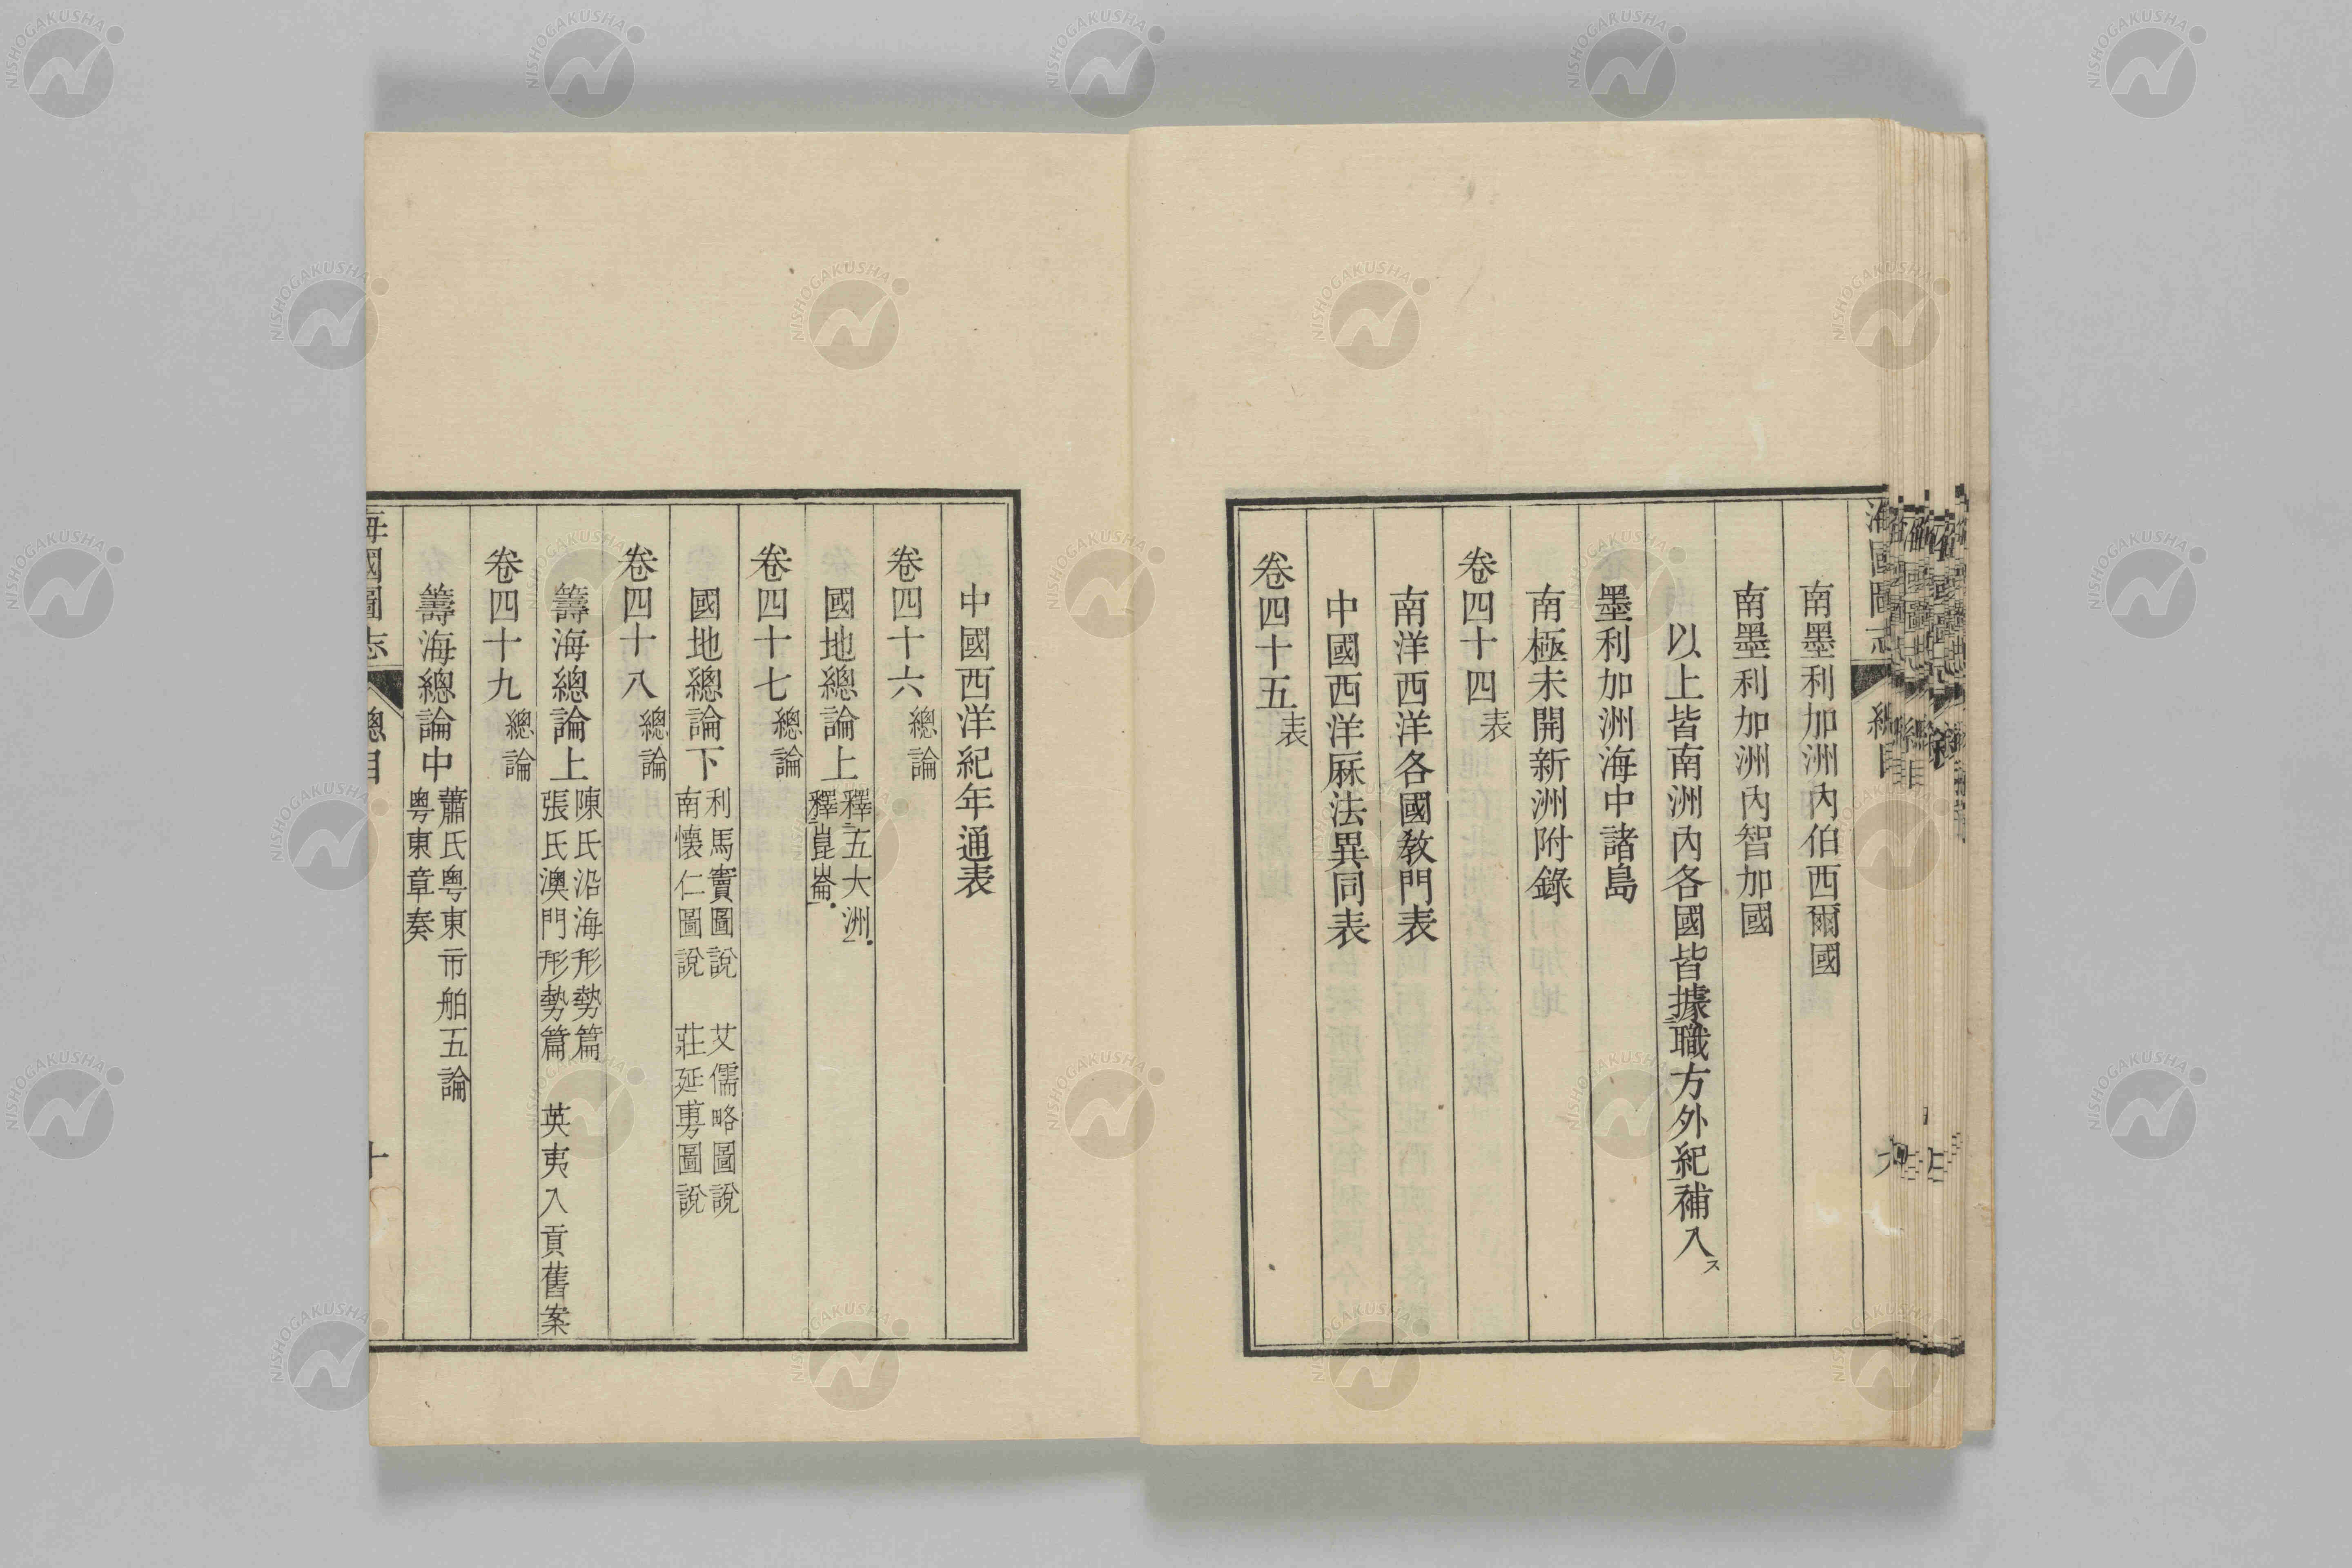 南墨利加洲內伯西爾國
南墨利加洲內智加國
以上皆南洲內各國皆據職方外紀補入ス
墨利加洲海中諸島
南極未開新洲附錄
卷四十四表
南洋西洋各國敎門表
中國西洋厤法異同表
卷四十五表
中國西洋紀年通表
卷四十六總論
國地總論上釋五大洲
釋崑崙
卷四十七總論
國地總論下利馬竇圖說 艾儒略圖說
南懷仁圖說 莊延旉圖說
卷四十八總論
籌海總論上陳氏沿海形勢篇
張氏澳門形勢篇 英夷入貢舊案
卷四十九總論
籌海總論中蕭氏粵東市舶五論
粵東章奏
海國圖志 總目 十
NISHOGAKUSHA